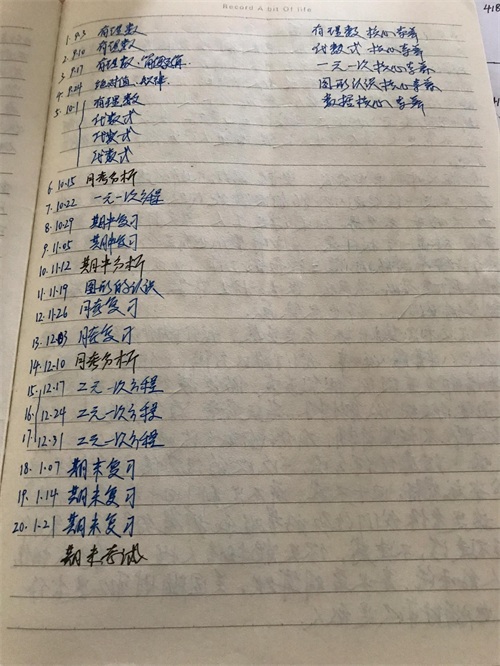 Record A bit Of life
418
1. 9.3 有理数 有理数 核心素养
2. 9.10 有理数 代数式 核心素养
3. 9.17 有理数、简便运算 一元一次核心素养
4. 9.24 绝对值、规律 图形认识核心素养
5. 10.1 有理数 数据核心素养
代数式
代数式
代数式
6. 10.15 月考分析
7. 10.22 一元一次方程
8. 10.29 期中复习
9. 11.05 期中复习
10. 11.12 期中分析
11. 11.19 图形的认识
12. 11.26 月考复习
13. 12.03 月考复习
14. 12.10 月考分析
15. 12.17 二元一次方程
16. 12.24 二元一次方程
17. 12.31 二元一次方程
18. 1.07 期末复习
19. 1.14 期末复习
20. 1.21 期末复习
期末考试